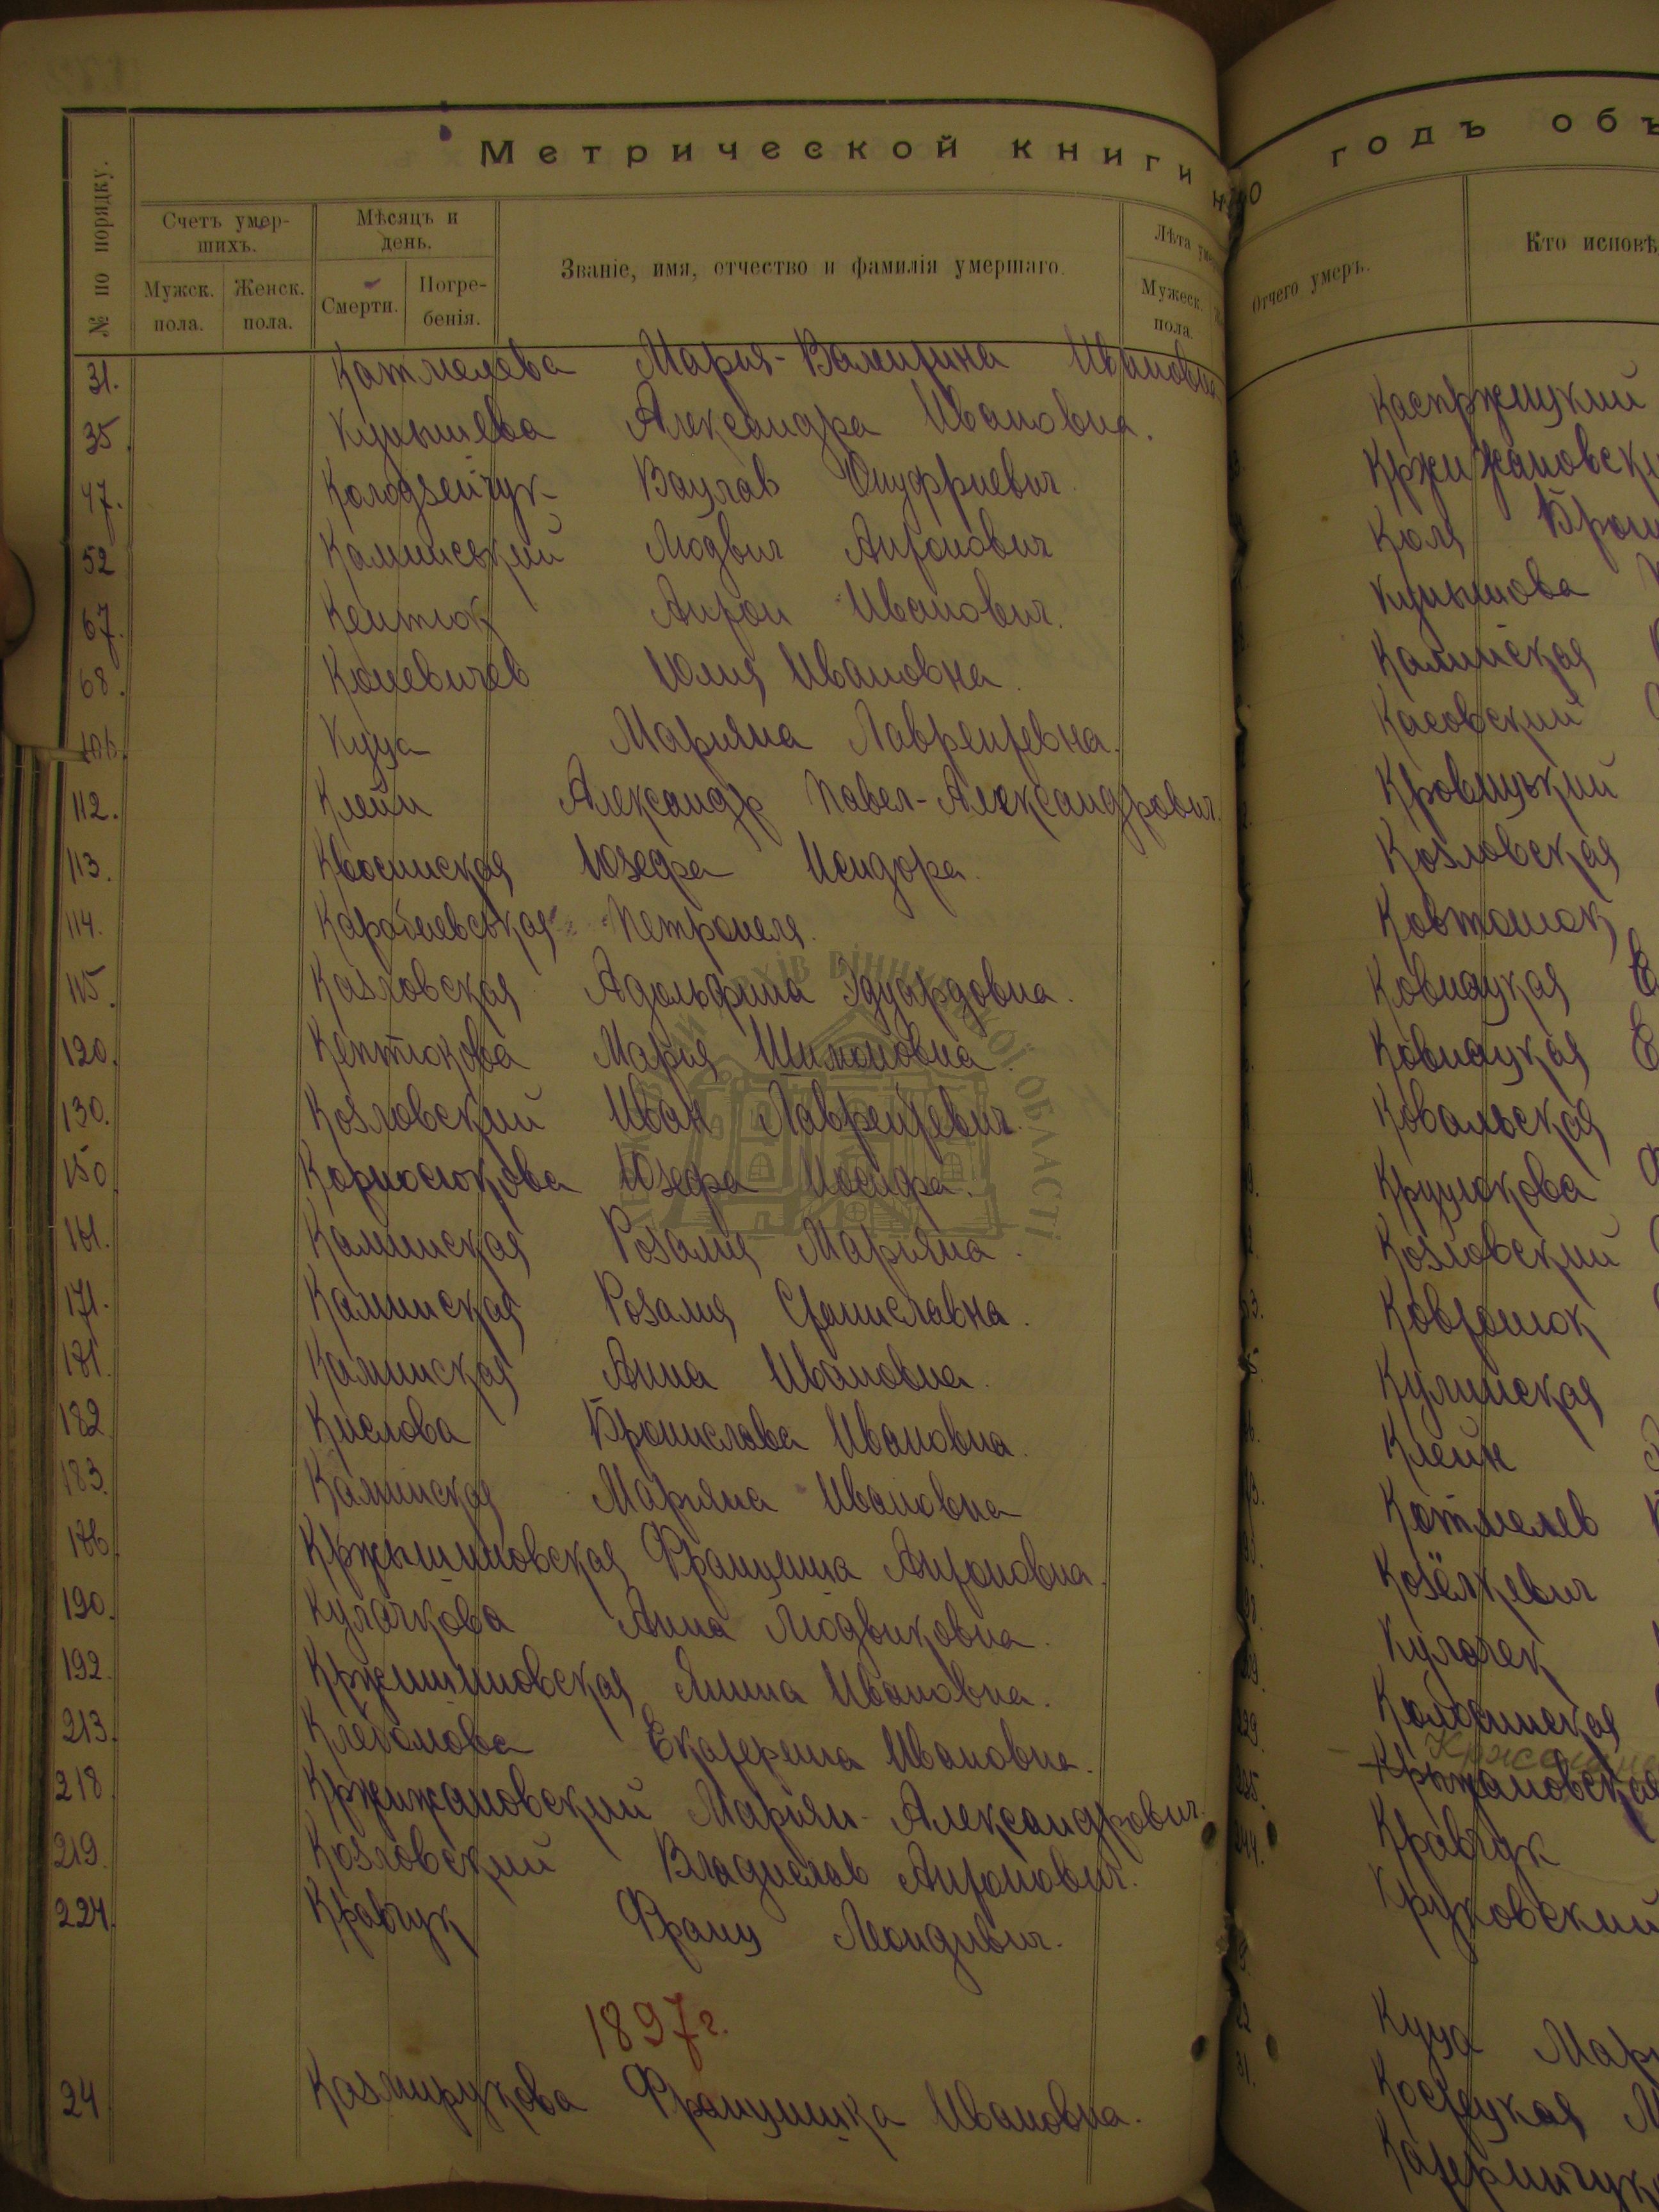 Метрической книги
№ по порядку.
Счетъ умер-
шихъ.
Мужск.
пола.
Женск.
пола.
Мѣсяцъ и
день.
Смерти.
Погре-
бенія.
Званіе, имя, отчество и фамилія умершаго.
Лѣта
Мужеск.
пола
31. Катмелева Мария-Валерина Ивановна
35. Кункшева Александра Ивановна.
47. Колодзейчук Вацлав Онуфриевич.
52 Каминський Людвиг Антонович
67. Кептюк Антон Иванович.
68. Юлия Ивановна.
106. Куца Марияна Лаврентевна.
112. Клейн Александр Павел-Александрович.
113. Квасинская Юзефа Исидора.
114. Петронеля.
115. Козловская Адольфина Эдуардовна.
120. Кептюкова Мария Шимоновна.
130. Козловский Иван Лаврентевич.
150 Юзефа Иосифа.
161. Каминская Розалия Марияна.
171. Каминская Розалия Станиславна.
181. Каминская Анна Ивановна.
182 Кислова Бронислава Ивановна.
183. Каминская Марияна Ивановна
186. Кржышиновская Антоновна.
190. Кулачкова Анна Людвиковна.
192. Кржишиновская Янина Ивановна.
213. Клебанова Екатерина Ивановна.
218. Кржижановский Мариян-Александрович.
219. Козловский Владислав Антонович.
224. Кравчук Франц
1897г.
24 Казмирукова Францишка Ивановна.
годъ объ
Отчего умеръ.
Кто исповѣ
Каспржицкий
Кржижановски
Коля Брон
Кункшова
Каминская
Касовский
Кровицький
Козловская
Ковтонюк
Ковнацкая Е
Ковнацкая Е
Ковальская
Козловский
Ковтонюк
Кулинская
Клейн
Котмелев
Козёлкевич
Кулачек
Кржановская
Кравчук
Круковский
Куца Мар